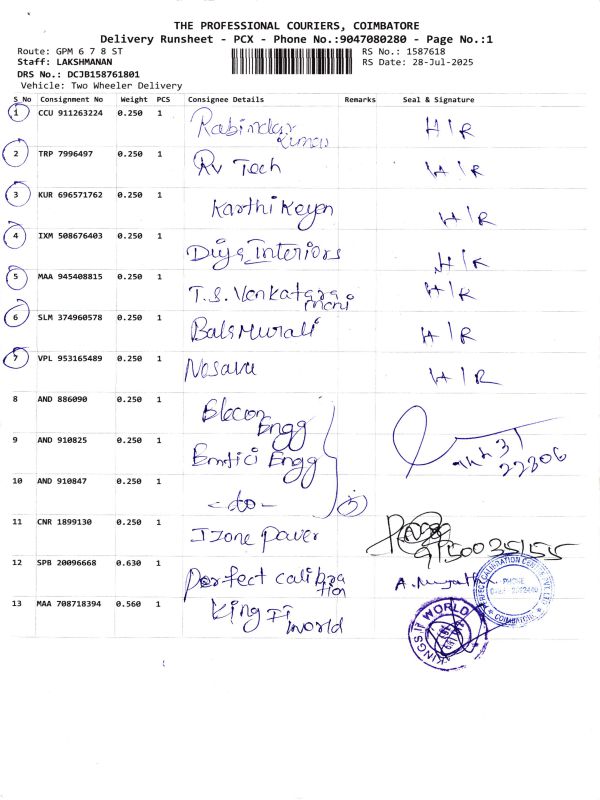 THE PROFESSIONAL COURIERS, COIMBATORE
Delivery Runsheet - PCX - Phone No.:9047080280 - Page No.:1
Route: GPM 6 7 8 ST
RS No.: 1587618
Staff: LAKSHMANAN
RS Date: 28-Jul-2025
DRS No.: DCJB158761801
Vehicle: Two Wheeler Delivery
S_No Consignment No Weight PCS Consignee Details Remarks Seal & Signature
1 CCU 911263224 0.250 1 Rabindar H/R
Kumar
2 TRP 7996497 0.250 1 RV Tech H/R
3 KUR 696571762 0.250 1 Karthikeyan H/R
4 IXM 508676403 0.250 1 Divya Interiors H/R
5 MAA 945408815 0.250 1 T.S. Venkatara H/R
mani
6 SLM 374960578 0.250 1 BalaMurali H/R
7 VPL 953165489 0.250 1 H/R
8 AND 886090 0.250 1 Elecon
Engg
9 AND 910825 0.250 1 Engg
22206
10 AND 910847 0.250 1 -do-
3
11 CNR 1899130 0.250 1 Izone Power
12 SPB 20096668 0.630 1 Perfect calibra
tion
PERFECT CALIBRATION CENTRE
PHONE
COIMBATORE
13 MAA 708718394 0.560 1 King IT
World
KINGS IT WORLD